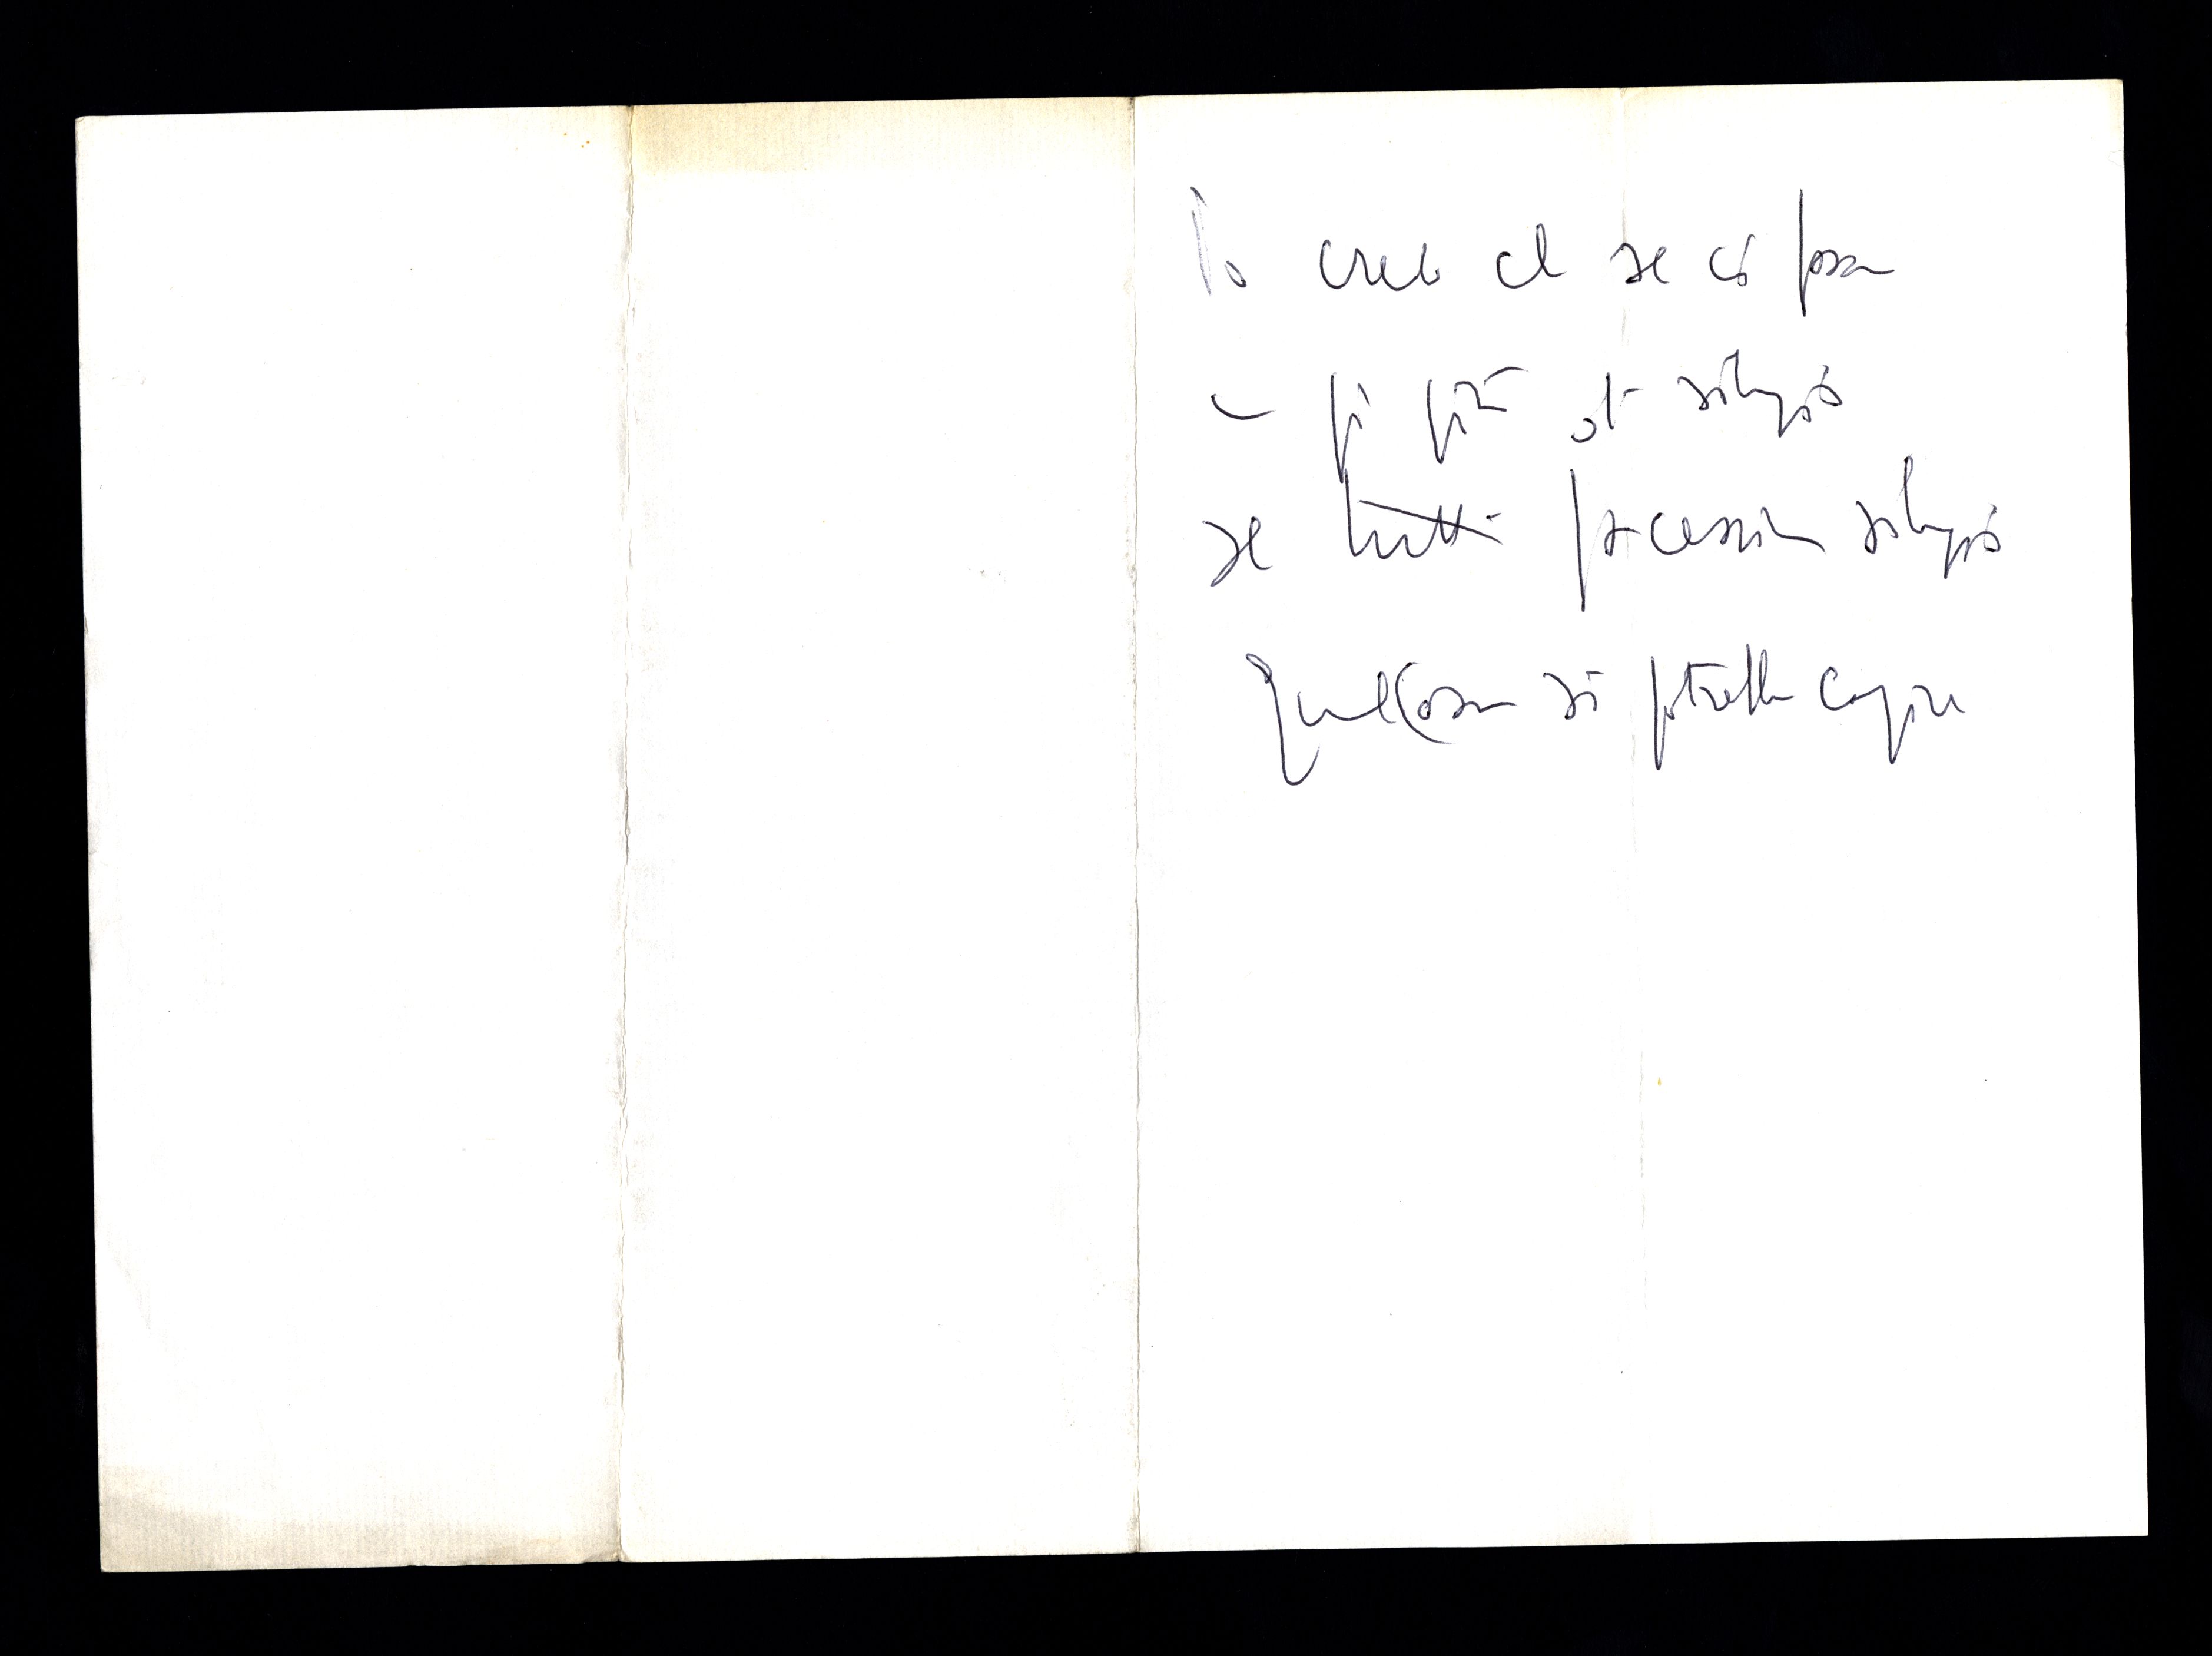 Io credo che se ci fosse
un pò più di silenzio
se tutti facessimo silenzio
qualcosa si potrebbe capire